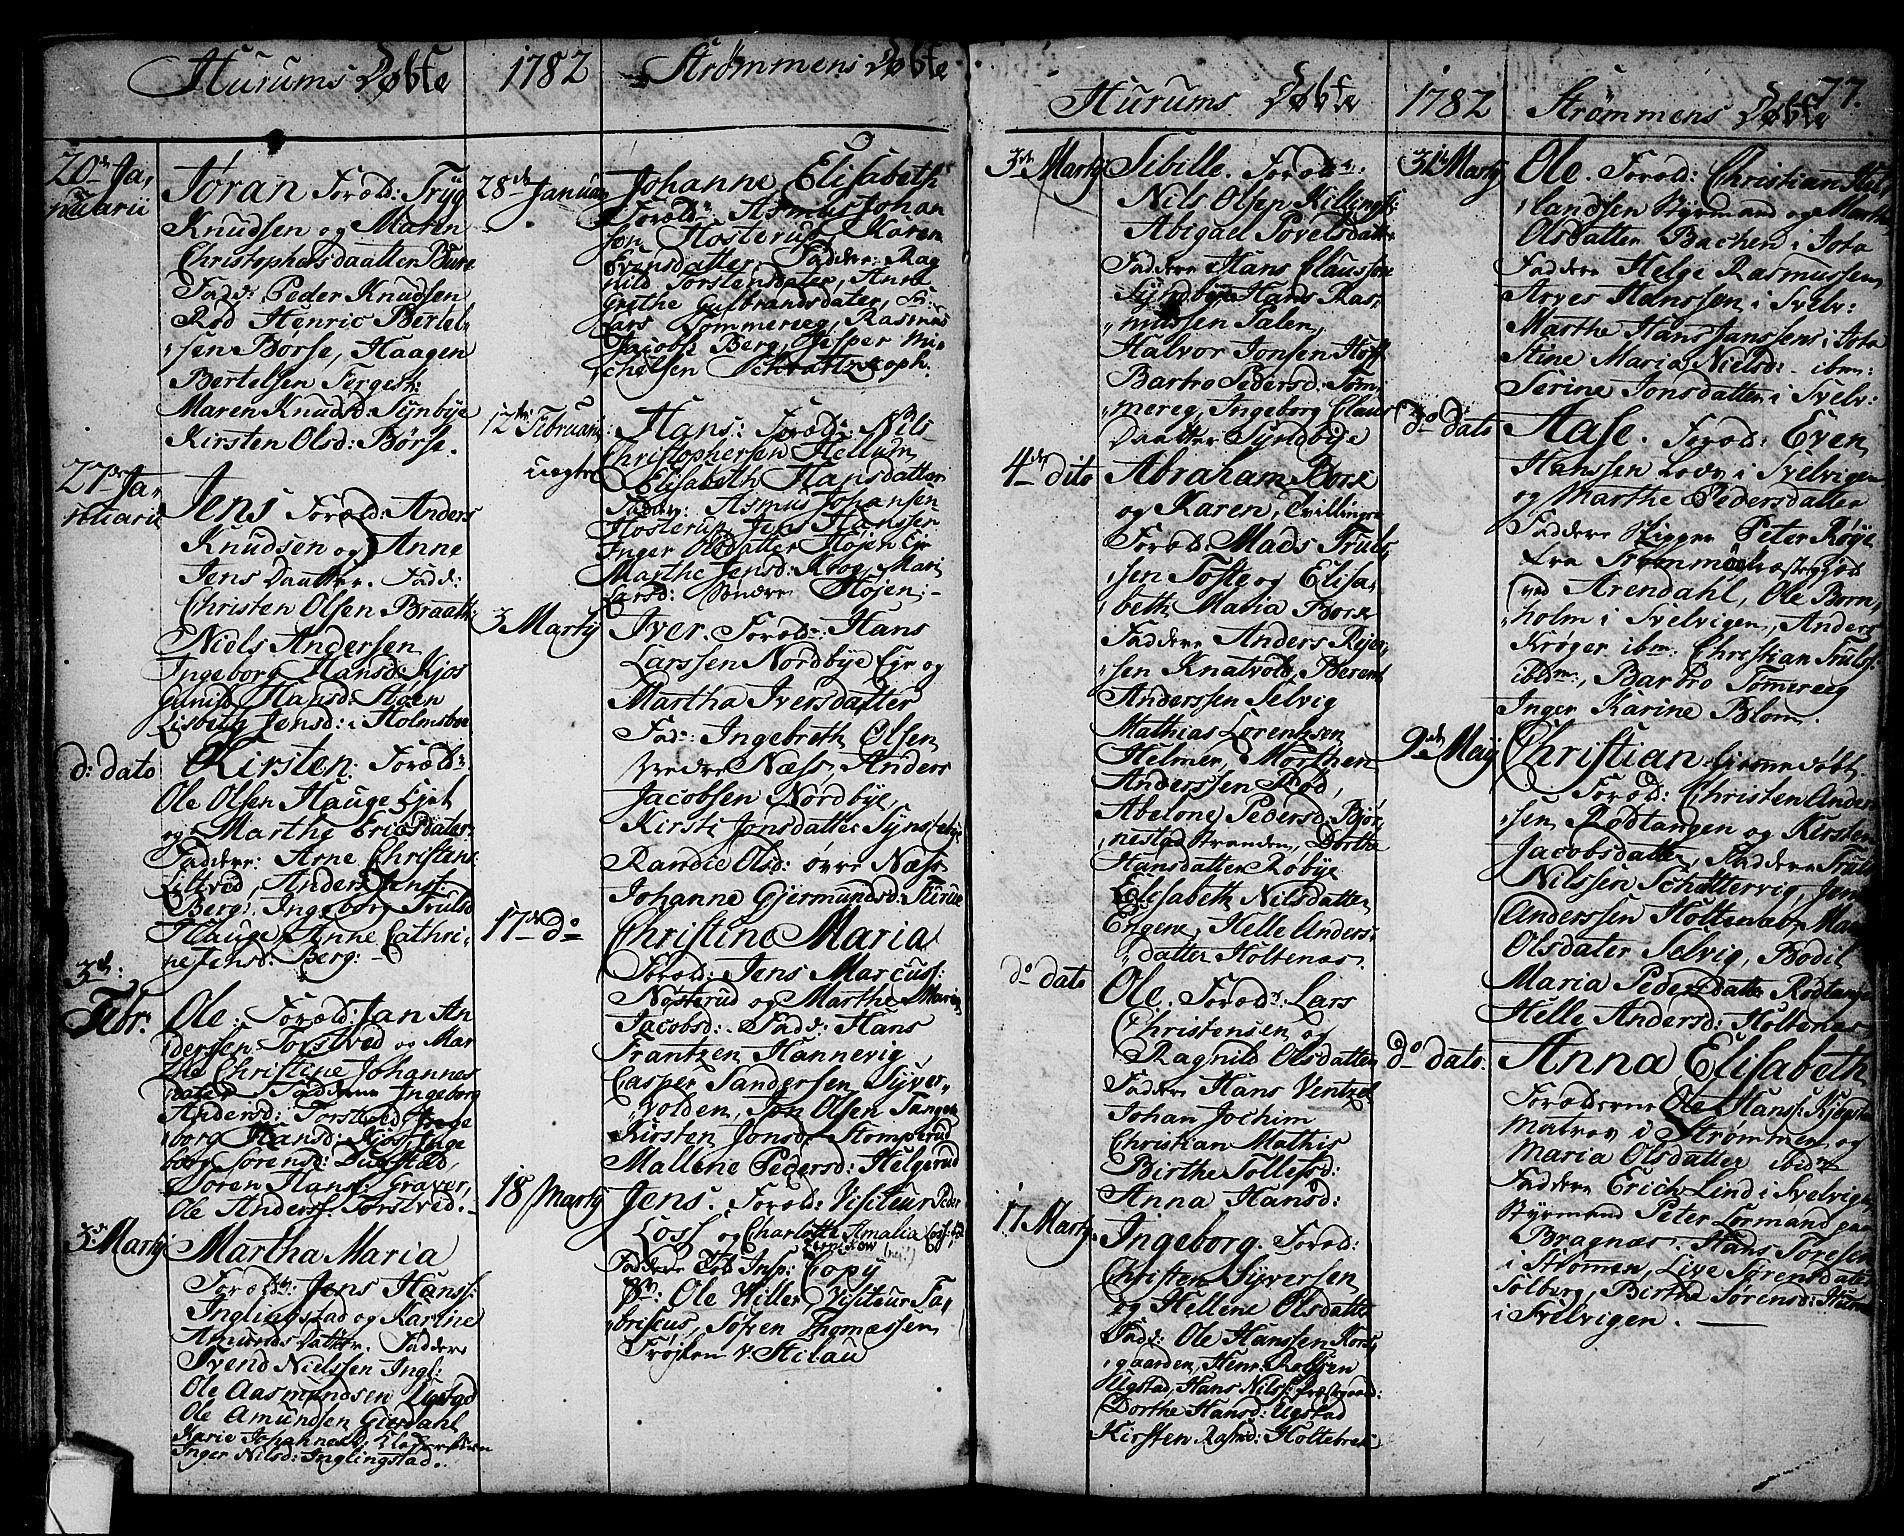 Hurums Døbte
1782
Strømmens Døbte
20de Ja,
nuarii
Jøran Foræld: Tryg
Knudsen og Maren
Christophersdaatter Bure
Fadd: Peder Knudsen
Rød Henric Bertel,
,,sen Borse, Haagen
Bertelsen Fergest:
Maren Knudsd: Synbye
Kirsten Olsd: Børse.
27de Ja,
nuarii
Jens Foræld: Anders
Knudsen og Anne
Jens Daatter. Fadd:
Christen Olsen Braath:
Niels Andersen
Ingeborg Hansd: Kjos
Gunild Hansd: Støen
Lisbeth Jensd: i Holmsboe
d: dato
Kirsten. Foræld:
Ole Olsen Hauge Ejet
og Marthe Ericsdater
Faddere: Arne Christens:
Eltved, Anders Jens:
Berg: Ingeborg Truls
Hauge, Anne Cathri,
ne Jensd: Berg:
3d.
Febr:
Ole: Foræld: Jan An
dersen Torstved og Mar
the Christine Johannes
dater Faddere Ingeborg
Andersd: Torstved, Inge
borg Hansd: Kjos, Inge
borg Sørensd: Dustad,
Søren Hans: Graver,
Ole Anderss: Torstved.
3d Martj
Martha Maria
Foræld: Jens Hanss:
Inglingstad og Karine
Amunds Datter. Faddere
Svend Nielssen Ingl:
Ole Aasmundsen Ugstad
Ole Amundsen Gierdahl
Karie Johannesd,
Inger Nilsd: Inglingstad.
28de Januar
Johanne Elisabeth
Foræld: Asmus Johan
sen Hosterud, Karen
Evensdatter, Faddere: Rag
nild Torstensdater, Anne
Grethe Gulbrandsdater, S:
Lars Tommereeg, Rasmus
Jacobs: Berg, Jesper Mi,
chelsen Schvartzkoph.
12te Februarii
uægte
Hans: Foræld: Nils
Christophersen Hellum
Elisabeth Hansdatter
Fadder: Asmus Johansen
Hosterud, Jens Hanssen
Inger Olsdatter Højen Eje
Marthe Jensd: Krog, Mari
Larsd: Søndre Højen.
3 Martij
Iver. Foræld: Hans
Larssen Nordbye Eje og
Martha Iversdatter
Fad: Ingebreth Olsen
Nedre Næss, Anders
Jacobsen Nordbye,
Kirsti Jonsdatter Synsfebye
Randie Olsd: øvre Næss
Johanne Gjermundsd: Kirue
17de do
Christine Maria
Foræld: Jens Marcuss:
Nøsterud og Marthe Maria
Jacobsd: Fadd: Hans
Frantzen Hannevig
Casper Sandersen Syver,
,,volden, Jon Olsen Tangen
Kirsten Jonsd: Stomperud
Mallene Pedersd: Helgerud
18 Martij
Jens. Foræld: Visiteur Peder
Loss og Charlotte Amalia
Faddere Told Insp: Copy
Ole Willer, Visiteur Fa,
,,briscus, Søfren Thomassen
Frøken v: Stilau
Hurums Døbte
1782
Strømmens Døbte
77.
3de Martij
Sibille. Foræld:
Nils Olsen Killings:
Abigael Povelsdatter
Faddere Hans Clausen
Syndbye Hans Ras,
,,mussen Palen,
Halvor Jonsen Høje
Barbro Pedersd: Tom,
,,mereg, Ingeborg Claus
Daatter Syndbye
4de dito
Abraham Bork
og Karen, Tvillinger
Foræld: Mads Truls,
,,sen Tofte og Elisa,
beth Maria Bork
Faddere Anders Rejer,
,,sen Knatvold, Berent
Anderssen Selvig
Mathias Lorentzen
Helmer, Morthen
Anderssen Rød,
Abelone Pedersd: Bjør,
nestad Stranden, Dorthe
Hansdatter Røbye
Elisabeth Nilsdatter
Engene, Helle Anders,
,,datter Holtenæs.
do dato
Ole. Foræld: Lars
Christensen og
Ragnild Olsdatter
Faddere Hans Ventzel
Johan Jochim
Christian Mathis
Birthe Tollefsd:
Anna Hansd:
17 Martj.
Ingeborg. Foræld:
Christen Syversen
og Hellene Olsdatter
Fadd: Ole Hanssen Kors,
,,gaarden, Henr: Rolfsen
Ugstad, Hans Nilss: Præstgaard:
Dorthe Hansd: Ugstad
Kirsten Rasmd: Holtebrek
31te Martij
Ole. Foræld: Christian Hal,
,,landsen Styrmand og Marthe
Olsdatter Bachen i Tofa
Faddere Helge Rasmussen
Arves Hanssen i Svelv:
Marthe Hans Janssens i Tofa
Stine Maria Nielsd: ibm:
Serine Jonsdatter i Svelv:
do dato
Aase. Foræld: Even
Hanssen Lods i Svelvigen
og Marthe Pedersdatter
Faddere Skipper Peter Røye
fra Trommøe Præstegjeld
ved Arendahl, Ole Born,
,,holm i Svelvigen, Anders
Krøger ibm: Christian Truls:
ibidm:, Barbro Tommereeg
Inger Karine Blom.
9de Maij
Christian hiemmedøbt
Foræld: Christen Ander
,,sen Rødtangen og Kirsten
Jacobsdatter, Faddere Truls
Nilssen Schøttervig, Jens
Anderssen Holtenæs, Mari
Olsdater Selvig, Bodil
Maria Pedersdatter Rødtange
Helle Andersd: Holtenæs
do dato.
Anna Elisabeth
Forældrene Ole Hanss: Kjøgstad
Matros i Strømmen og
Maria Olsdatter ibidm
Faddere Erich Lind i Svelvigen
Styrmand Peter Lormand paa
Bragnæs. Hans Toresen
i Strømen, Live Sørensdater
Solberg, Birthe Sørensd: Hurum
i Svelvigen.